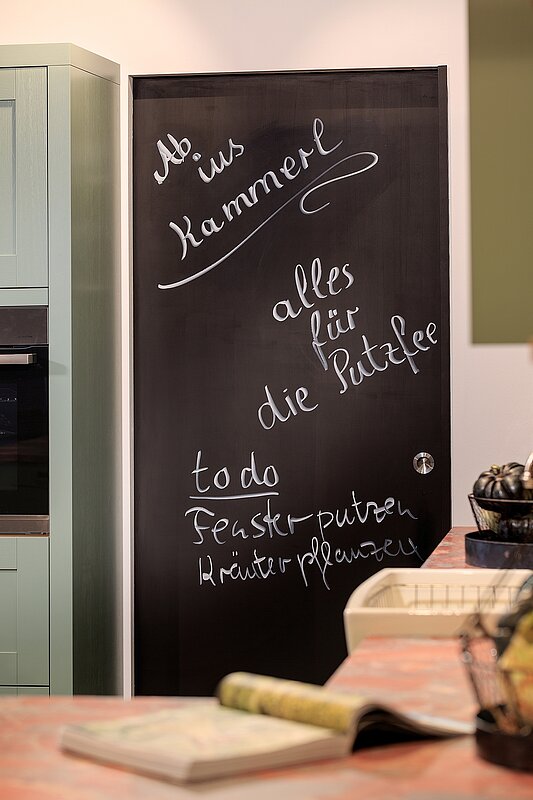 Ab ins
Kammerl
alles
für
die Putzfee
to do
Fenster putzen
Kräuter pflanzen